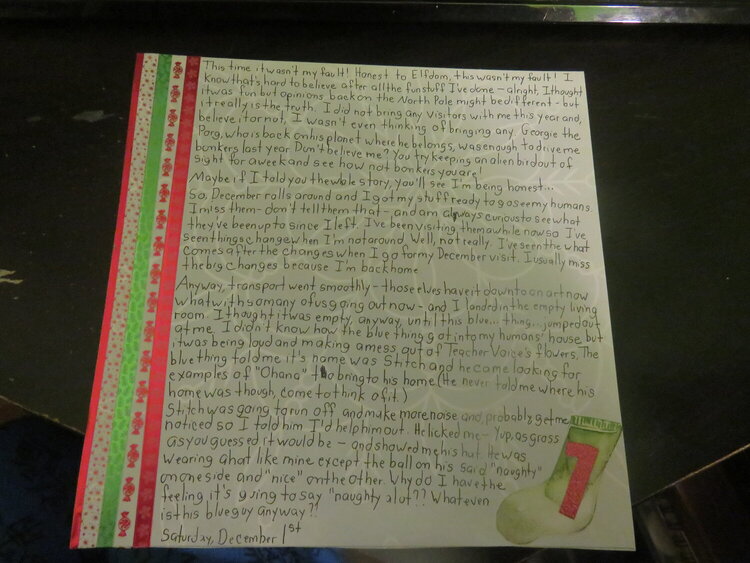 This time it wasn't my fault! Honest to Elfdom, this wasn't my fault! I
know that's hard to believe after all the fun stuff I've done - alright, I thought
it was fun but opinions back on the North Pole might be different - but
it really is the truth. I did not bring any visitors with me this year and,
believe it or not, I wasn't even thinking of bringing any. Georgie the
Porg, who is back on his planet where he belongs, was enough to drive me
bonkers last year. Don't believe me? You try keeping an alien bird out of
sight for a week and see how not bonkers you are!
Maybe if I told you the whole story, you'll see I'm being honest...
So, December rolls around and I got my stuff ready to go see my humans.
I miss them - don't tell them that - and am always curious to see what
they've been up to since I left. I've been visiting them awhile now so I've
seen things change when I'm not around. Well, not really. I've seen the what
comes after the changes when I go for my December visit. I usually miss
the big changes because I'm back home.
Anyway, transport went smoothly - those elves have it down to an art now
what with so many of us going out now - and I landed in the empty living
room. I thought it was empty, anyway, until this blue... thing... jumped out
at me. I didn't know how the blue thing got into my humans' house, but
it was being loud and making a mess out of Teacher Voice's flowers. The
blue thing told me it's name was Stitch and he came looking for
examples of "Ohana" to bring to his home (He never told me where his
home was though, come to think of it.)
Stitch was going to run off and make more noise and probably get me
noticed so I told him I'd help him out. He licked me - Yup, as gross
as you guessed it would be - and showed me his hat. He was
wearing a hat like mine except the ball on his said "naughty"
on one side and "nice" on the other. Why do I have the
feeling it's going to say "naughty" a lot?? What even
is this blue guy anyway??
Saturday, December 1st
1